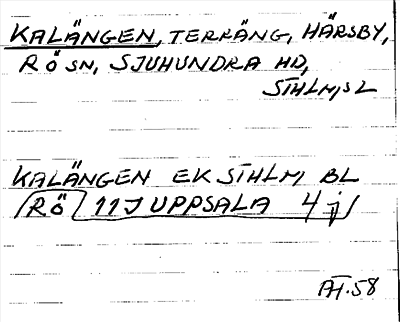 KALÄNGEN, TERRÄNG, HÄRSBY,
RÖ SN, SJUHUNDRA HD,
STHLM, SL
KALÄNGEN EK STHLM BL
RÖ 11J UPPSALA 4 j
AT.58